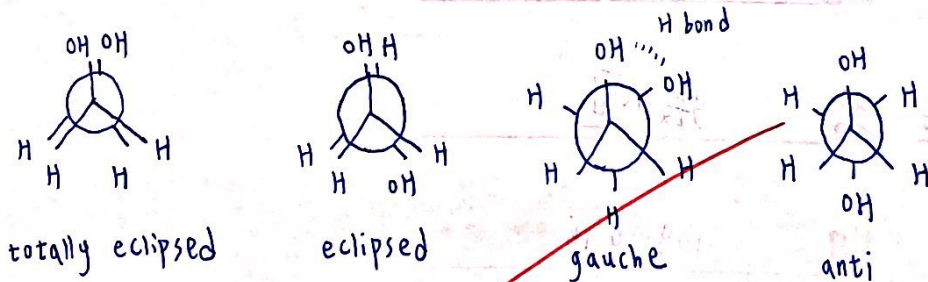 OH OH
H H H H
totally eclipsed
OH H
H H OH H
eclipsed
H bond
OH OH
H H H H
gauche
OH
H H
H H
OH
anti